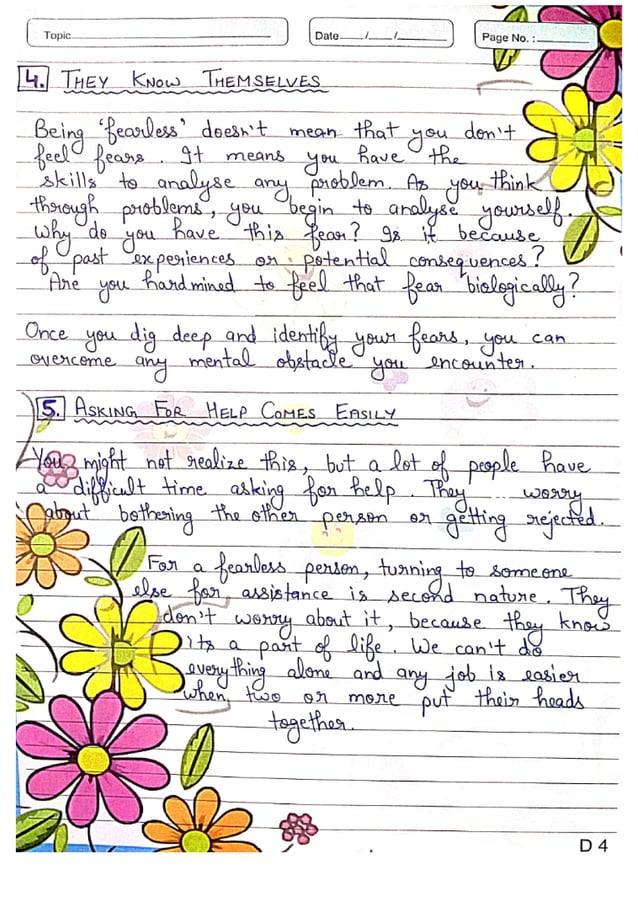 Topic
Date / /
Page No. :
4. THEY KNOW THEMSELVES
Being 'fearless' doesn't mean that you don't
feel fears. It means you have the
skills to analyse any problem. As you think
through problems, you begin to analyse yourself.
Why do you have this fear? Is it because
of past experiences or potential consequences?
Are you hardmined to feel that fear biologically?
Once you dig deep and identify your fears, you can
overcome any mental obstacle you encounter.
5. ASKING FOR HELP COMES EASILY
You might not realize this, but a lot of people have
a difficult time asking for help. They ... worry
about bothering the other person or getting rejected.
For a fearless person, turning to someone
else for assistance is second nature. They
don't worry about it, because they know
its a part of life. We can't do
everything alone and any job is easier
when two or more put their heads
together.
D 4